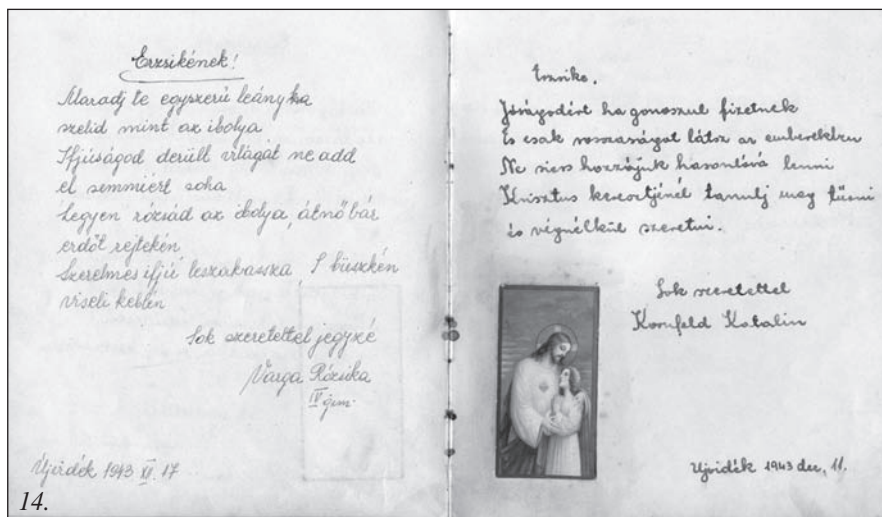 Erzsikének!
Maradj te egyszerű leányka
szelid mint az ibolya
Ifjúságod derült világát ne add
el semmiért soha
Legyen rózsád az ibolya, átnő bár
erdől rejtekén
Szerelmes ifjú leszakassza, S büszkén
viseli keblén
Sok szeretettel jegyzé
Varga Rózsika
IV gim.
Újvidék 1943 XII. 17
14.
Erzsike.
Jóságodért ha gonoszul fizetnek
És csak rosszaságot látsz az emberekben
Ne siess hozzájuk hasonlóvá lenni
Krisztus keresztjénél tanulj meg tűrni
és végnélkül szeretni.
Sok szeretettel
Kornfeld Katalin
Ujvidék 1943 dec. 11.